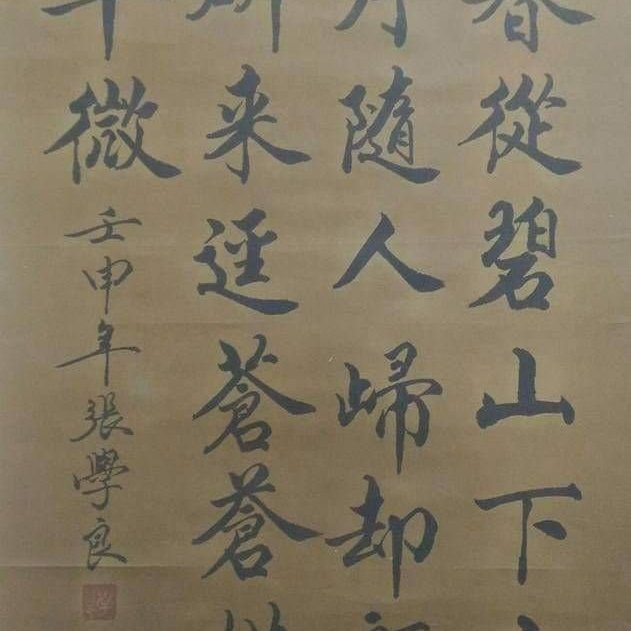 從碧山下
隨人歸却
来逕蒼蒼
微
壬申年張學良